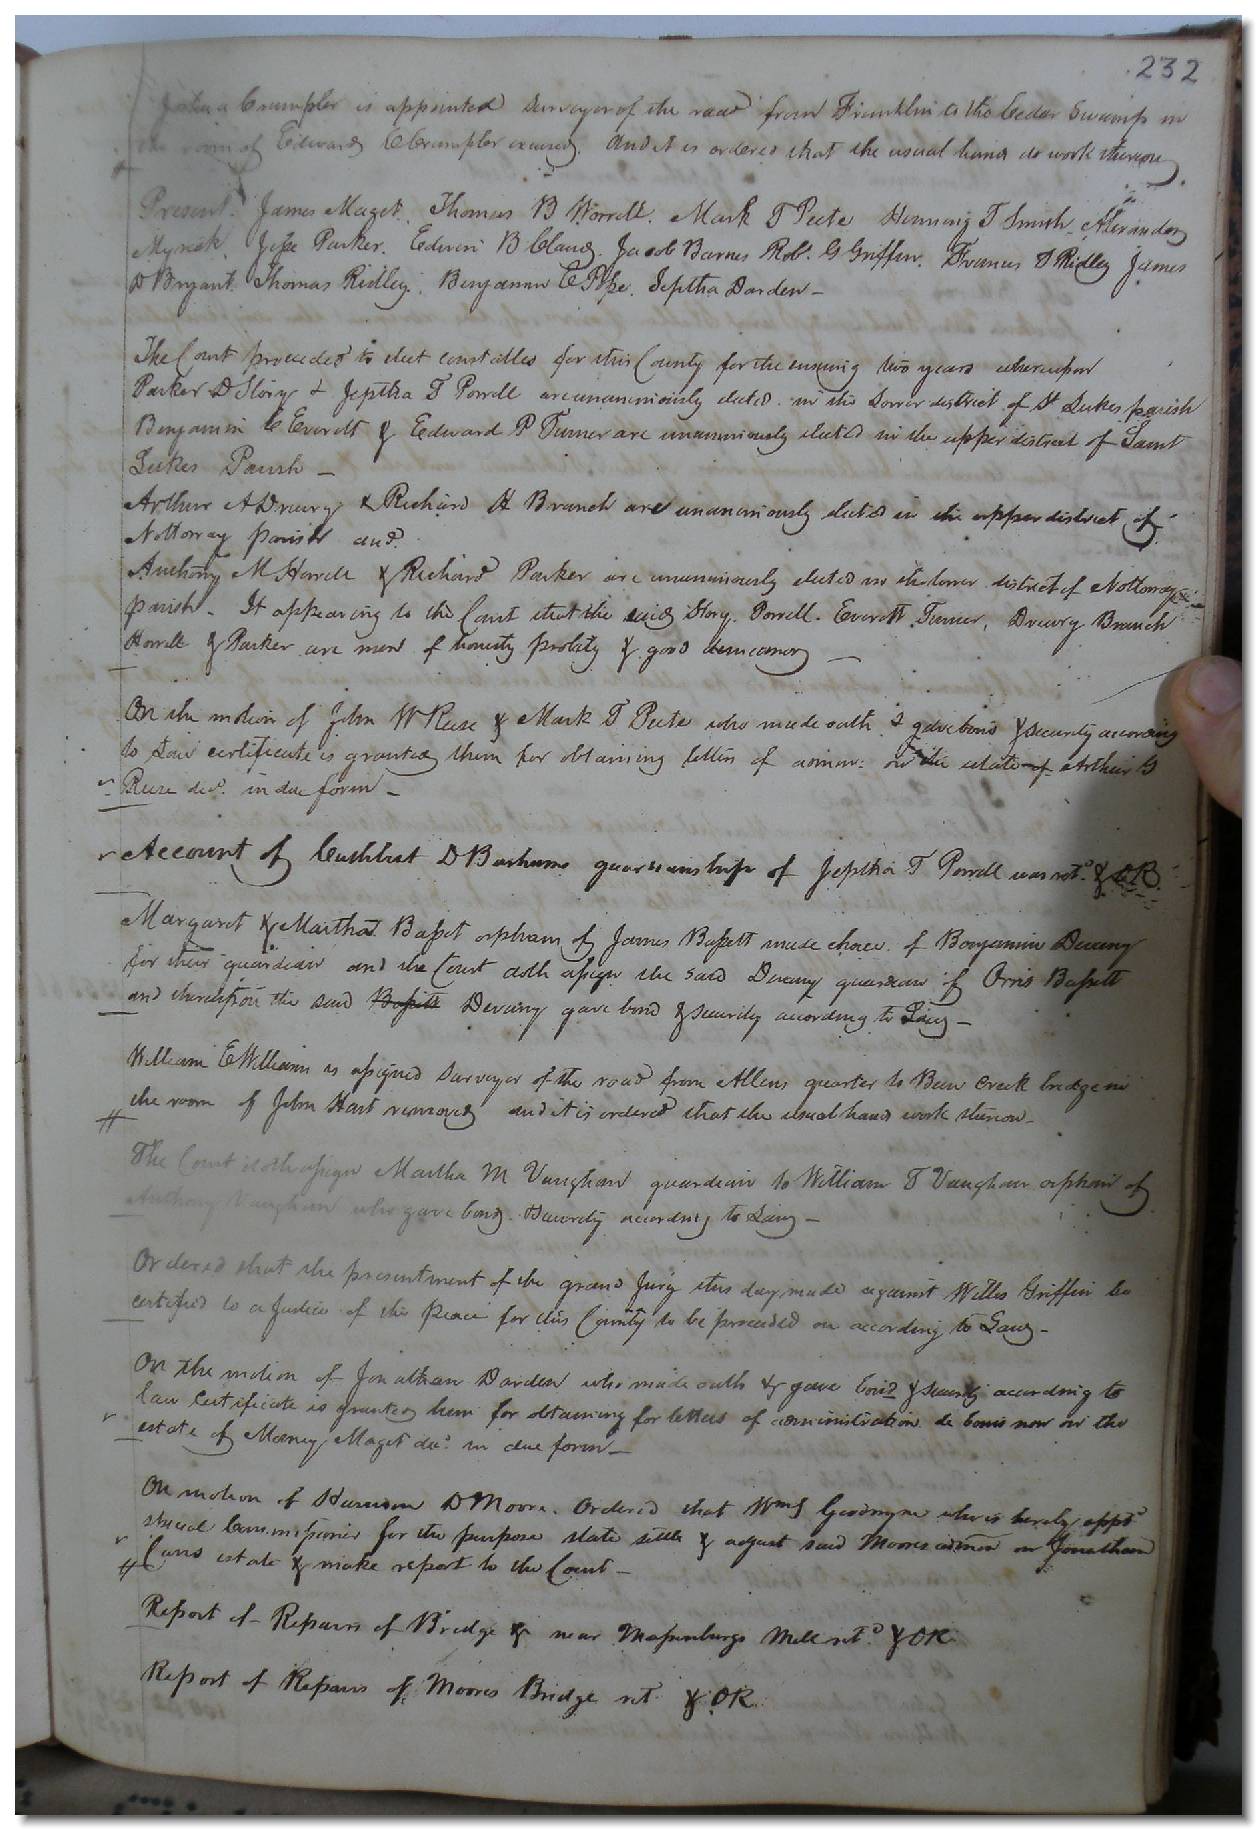 232
Joshua Crumpler is appointed Surveyor of the road from Franklin to the Cedar Swamp in
the room of Edward C Crumpler excused. And it is ordered that the usual hands do work thereon.
Present. James Maget. Thomas B Worrell. Mark T Peete Henning T Smith. Alexander
Myrick. Jesse Parker. Edwin B Claud. Jacob Barnes Rob. G Griffin. Francis T Ridley James
D Bryant. Thomas Ridley. Benjamin C Pope. Jeptha Darden –
The Court proceeded to elect constables for this County for the ensuing two years whereupon
Parker D Story & Jeptha T Porrell are unanimously elected in the Lower district of St Lukes parish
Benjamin C Everett & Edward P Turner are unanimously elected in the upper district of Saint
Lukes Parish –
Arthur A Drewry & Richard H Branch are unanimously elected in the upper district of
Nottoway parish and
Anthony M Harrell & Richard Parker are unanimously elected in the lower district of Nottoway
parish. It appearing to the Court that the said Story. Porrell. Everett Turner, Drewry Branch
Harrell & Parker are men of honesty probity & good demeanor –
On the motion of John W Reese & Mark T Peete who made oath & gave bond & security according
to Law certificate is granted them for obtaining letters of admn: on the estate of Arthur G
Reese decd. in due form –
Account of Cuthbert D Barhams guardianship of Jeptha T Porrell was retd. & OR
Margaret & Martha Bassett orphans of James Bassett made choice of Benjamin Devany
for their guardian and the Court doth assign the said Devany guardian of Orris Bassett
and thereupon the said Bassett Devany gave bond & security according to Law –
William E William is assigned surveyor of the road from Allens quarter to Bear Creek bridge in
the room of John Hart removed and it is ordered that the usual hands work thereon –
The Court doth assign Martha M Vaughan guardian to William T Vaughan orphan of
Anthony Vaughan who gave bond & security according to Law –
Ordered that the presentment of the grand Jury this day made against Willis Griffin be
certified to a Justice of the Peace for this County to be proceeded on according to Law –
On the motion of Jonathan Darden who made oath & gave bond & security according to
law certificate is granted him for obtaining for letters of administration de bonis non on the
estate of Maget decd. in due form –
On motion of Harrison D Moore. Ordered that Wm S Goodwyn who is hereby appd
special Commissioner for the purpose state settle & adjust said Moores admon on Jonathan
estate & make report to the Court –
Report of Repairs of Bridge & near Massenburgs Mill retd. & OR
Report of Repairs of Moores Bridge ret & OR